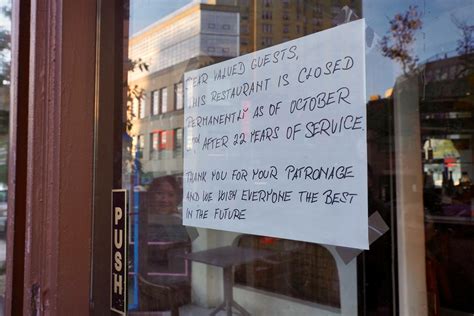 DEAR VALUED GUESTS,
THIS RESTAURANT IS CLOSED
PERMANENTLY AS OF OCTOBER
AFTER 22 YEARS OF SERVICE.
THANK YOU FOR YOUR PATRONAGE
AND WE WISH EVERYONE THE BEST
IN THE FUTURE
PUSH